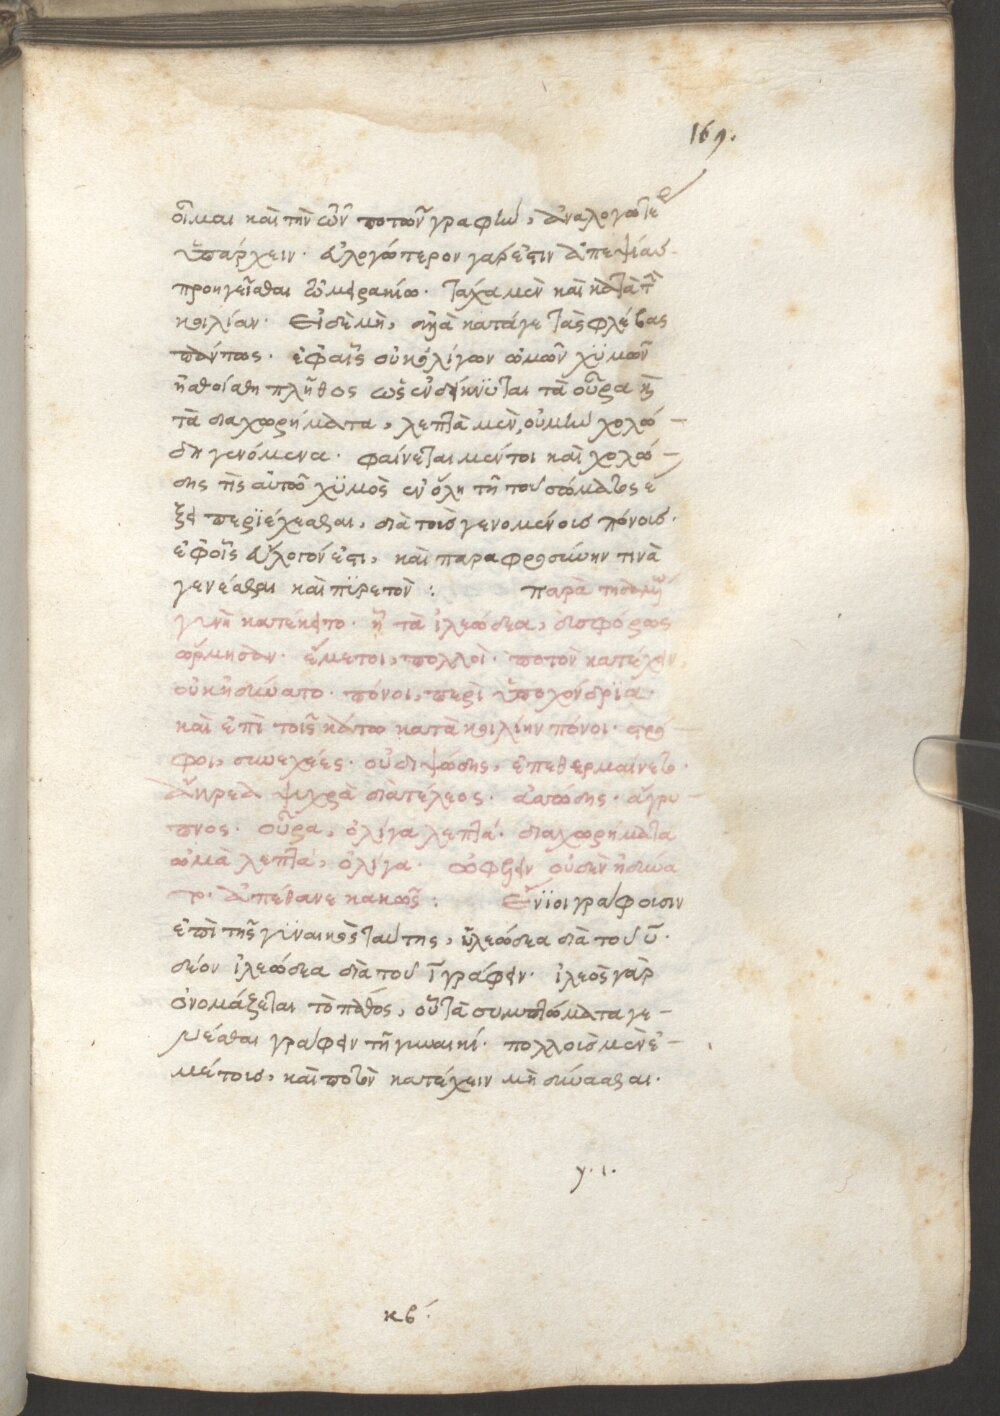 οἶμαι καὶ τὴν σὺν ποτῶν γραφὴν, ἀναλογωτέρ
ὑπάρχειν· ἀλογώτερον γάρ ἐστιν ἀπεψίας
προηγεῖσθαι τάχα μὲν καὶ κατὰ τὴν
κοιλίαν· Εἰ δὲ μὴ, ἀλλὰ κατά γε τὰς φλέβας
πάντως· ἐφ αἷς οὐκ ὀλίγων ὠμῶν χϋμῶν
ἠθροίσθη πλῆθος ὡς ἐνδείκνϋται τὰ οὖρα καὶ
τὰ διαχωρήματα, λεπτὰ μὲν, οὐ μὴν χολώ-
δη γενόμενα· φαίνεται μέντοι καὶ χολώ-
δης τὶς αὐτῶ χϋμὸς ἐν ὅλη τῆ τοῦ σώματος ἕ
ξει περϊέχεσθαι, διὰ τοὺς γενομένους πόνους·
ἐφ οἷς εὔλογόν ἐστι, καὶ παραφροσύνην τινὰ
γενέσθαι καὶ πϋρετὸν : παρὰ τισαμενῶ
γϋνὴ κατέκειτο· ἧ τὰ ἰλεώδεα, δυσφόρως
ὥρμησαν· ἔμετοι, πολλοὶ· ποτὸν κατέχειν,
οὐκ ἠδύνατο· πόνοι, περὶ ὑποχόνδρϊα·
καὶ ἐπὶ τοῖς κάτω κατὰ κοιλίην πόνοι· στρό
φοι, συνεχέες· οὐ διψώδης, ἐπεθερμαίνετο·
ἄκρεα ψυχρὰ διὰ τέλεος· ἀσώδης· ἄγρυ-
πνος· οὖρα, ὀλίγα λεπτά· διαχωρήματα
ὠμὰ λεπτά, ὀλίγα· ὠφελεῖν οὐδὲν ἠδύνα
το· ἀπέθανε κακῶς : Ἔνϊοι γράφουσιν
ἐπὶ τῆς γϋναικὸς ταύτης, εἰλεώδεα διὰ τοῦ υ·
δέον ἰλεώδεα διὰ τοῦ ι γράφειν· ἰλεὸς γὰρ
ὀνομάζεται τὸ πάθος, οὗ τὰ συμπτώματα γε-
νέσθαι γράφειν τῆ γυναικί· πολλοὺς μὲν ἐ-
μέτους, καὶ ποτὸν κατέχειν μὴ δύνασθαι·
γ. ι.
κβ´